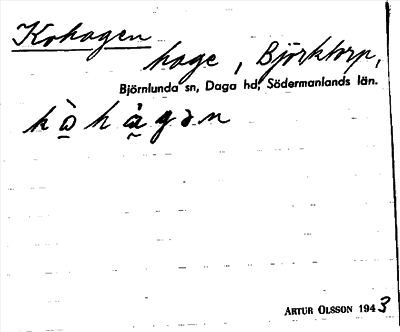 Kohagen
hage, Björktorp,
Björnlunda sn, Daga hd, Södermanlands län.
kò̤hà̤gən
ARTUR OLSSON 1943